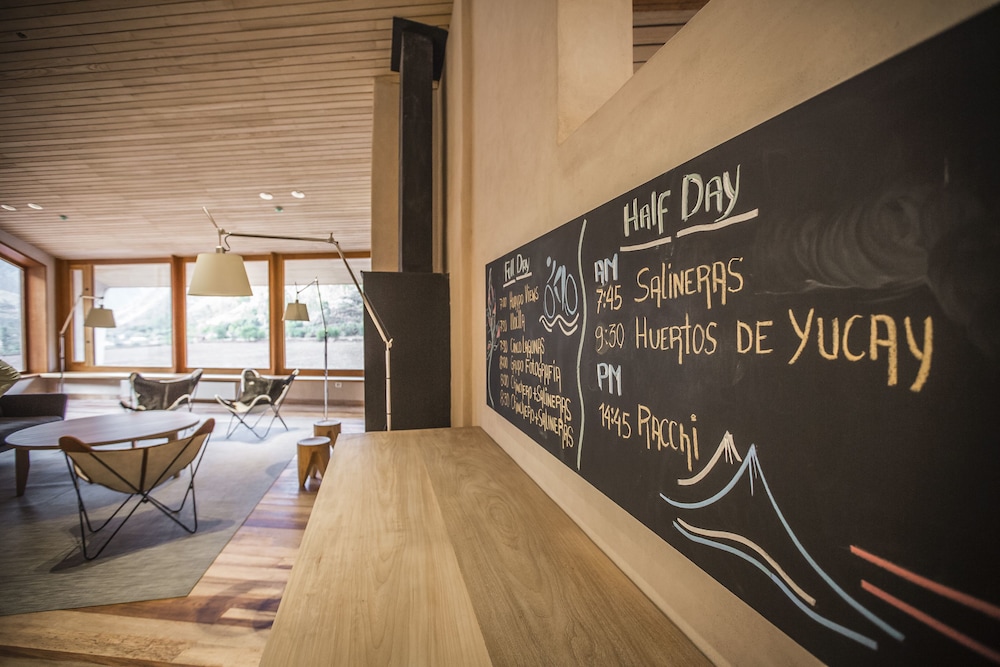 Full Day
7:00
7:30
8:00 Grupo Fotografía
8:00 Chinchero + Salineras
8:30 Chinchero + Salineras
Half Day
AM
7:45 Salineras
9:30 Huertos de Yucay
PM
14:45 Racchi